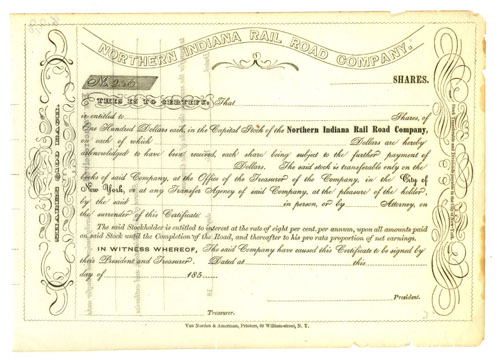 NORTHERN INDIANA RAIL ROAD COMPANY.
No. 250
SHARES.
THIS IS TO CERTIFY, That
is entitled to Shares, of
One Hundred Dollars each, in the Capital Stock of the Northern Indiana Rail Road Company,
on each of which Dollars are hereby
acknowledged to have been received, each share being subject to the further payment of
Dollars. The said stock is transferable only on the
books of said Company, at the Office of the Treasurer of the Company, in the City of
New York, or at any Transfer Agency of said Company, at the pleasure of the holder,
by the said in person, or by Attorney, on
the surrender of this Certificate.
The said Stockholder is entitled to interest at the rate of eight per cent. per annum, upon all amounts paid
on said Stock until the Completion of the Road, and thereafter to his pro rata proportion of net earnings.
IN WITNESS WHEREOF, The said Company have caused this Certificate to be signed by
their President and Treasurer. Dated at this
day of 185
President.
Treasurer.
Van Norden & Amerman, Printers, 60 William-street, N. Y.
SHARES $100 EACH.